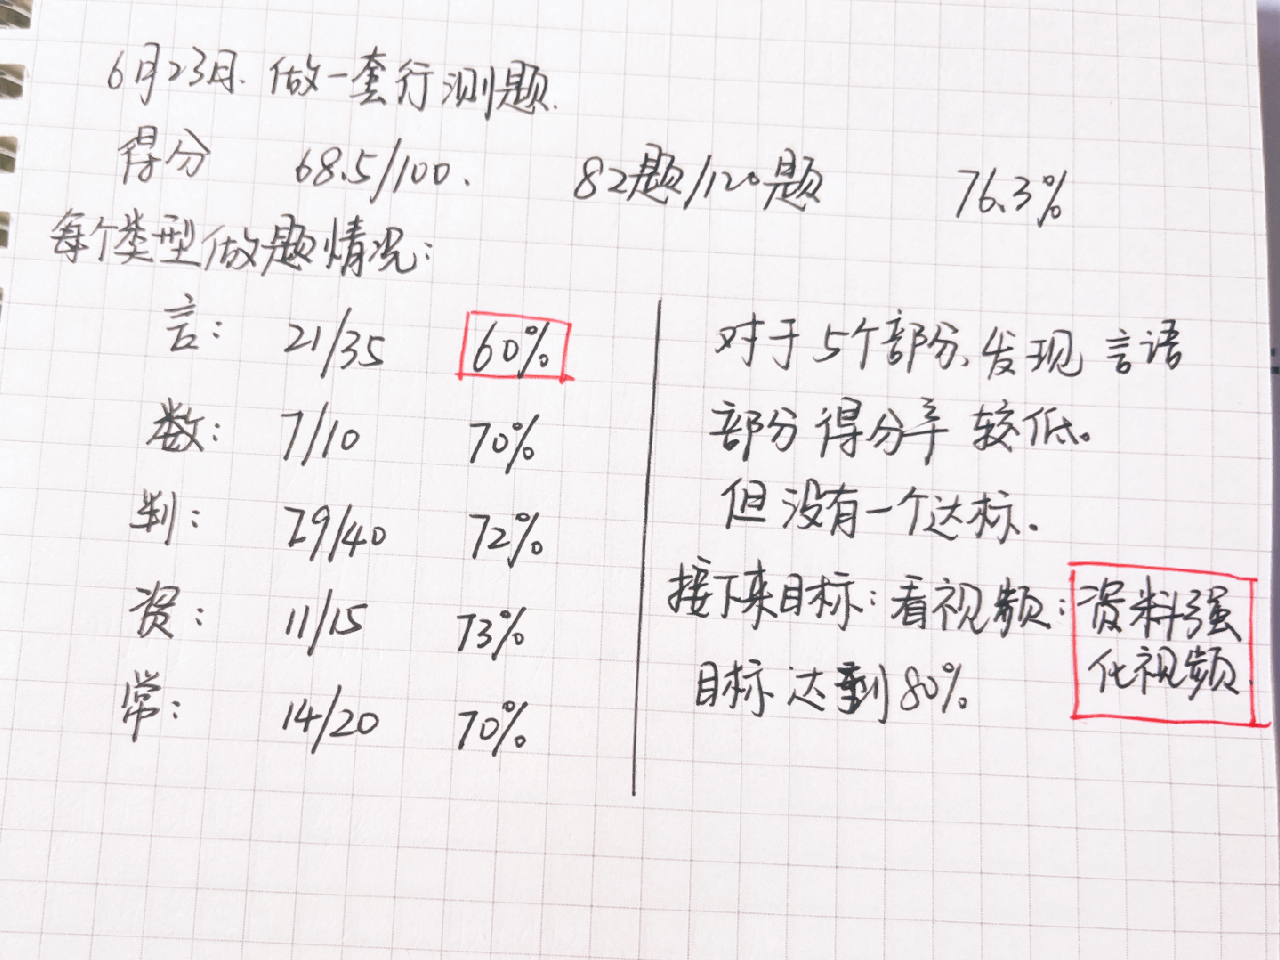 6月23日.做一套行测题.
得分 68.5/100. 82题/120题 76.3%
每个类型做题情况:
言: 21/35 60%
数: 7/10 70%
判: 29/40 72%
资: 11/15 73%
常: 14/20 70%
对于5个部分,发现言语
部分得分率较低。
但没有一个达标.
接下来目标:看视频:资料强
化视频.
目标达到80%